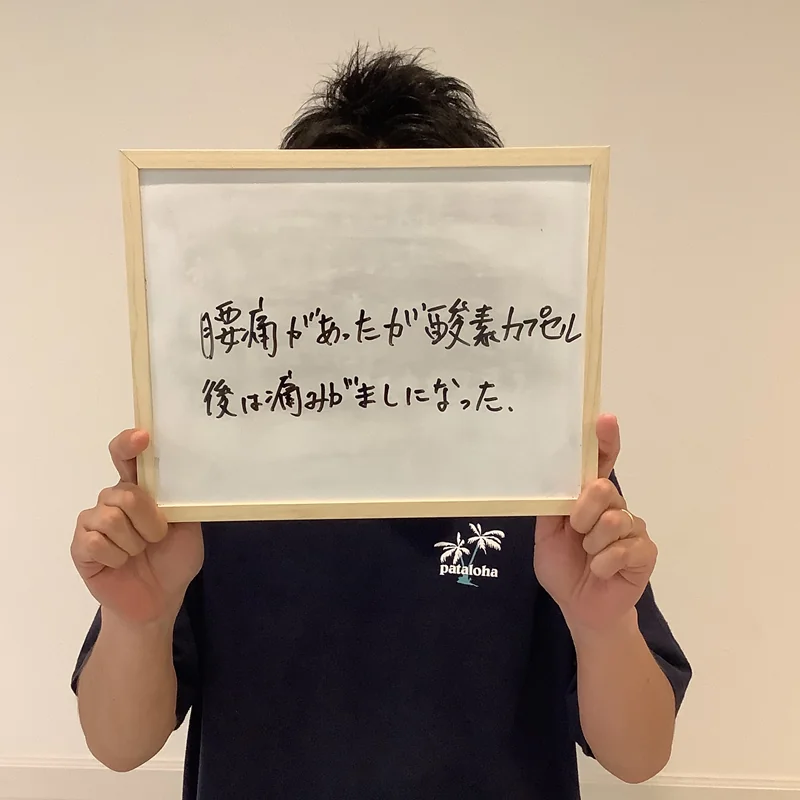 腰痛があったが酸素カプセル
後は痛みがましになった.
pataloha